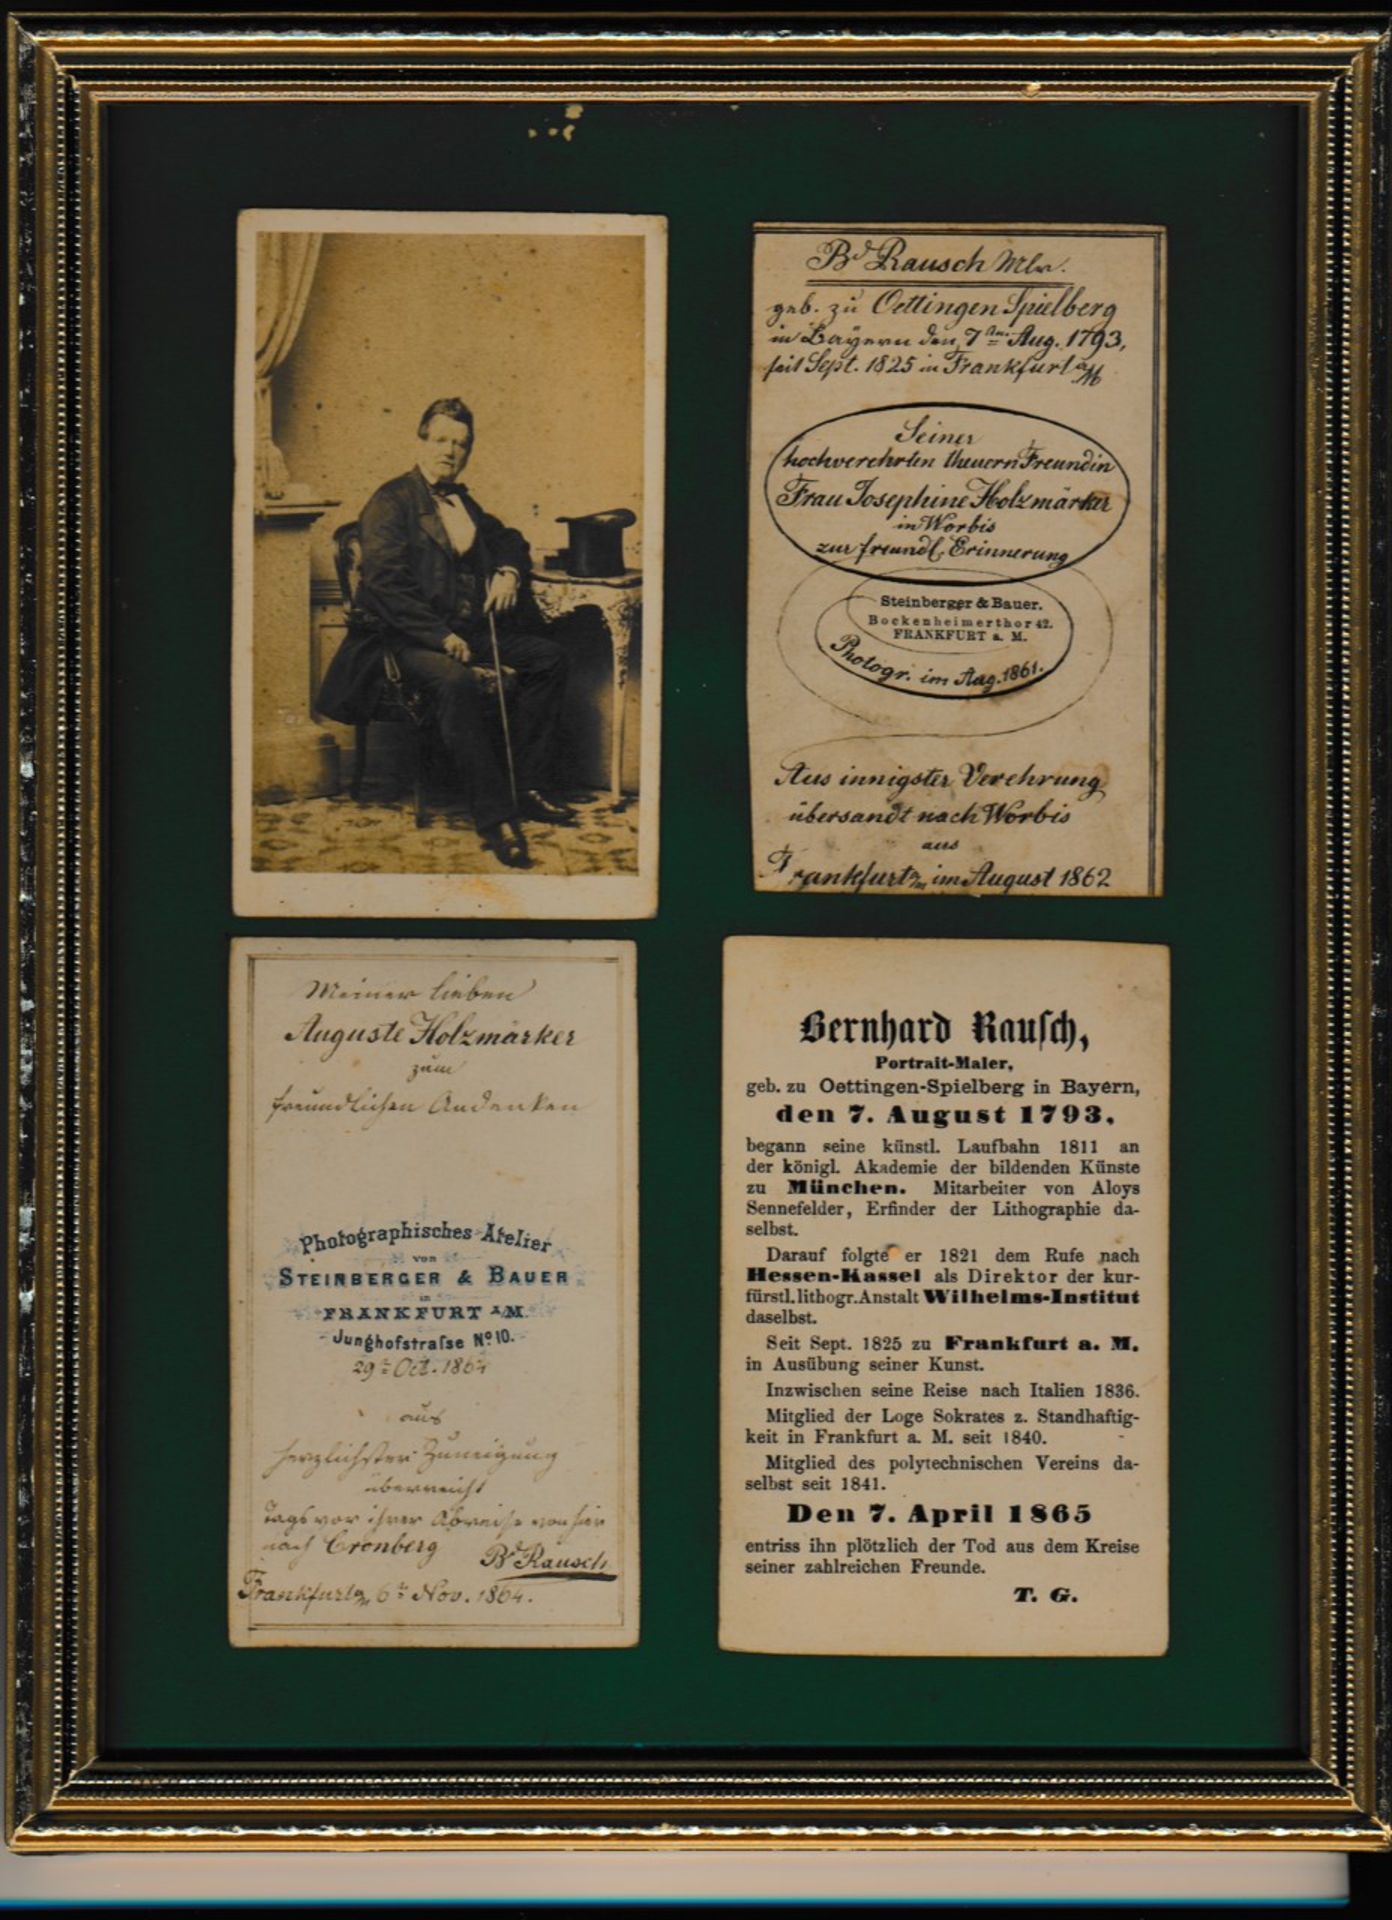 Bd Rausch Mlr.
geb. zu Oettingen Spielberg
in Bayern den 7ten Aug. 1793,
seit Sept. 1825 in Frankfurt a/M
Seiner
hochverehrten theuern Freundin
Frau Josephine Holzmärker
in Worbis
zur freundl. Erinnerung
Steinberger & Bauer.
Bockenheimerthor 42.
FRANKFURT a. M.
Photogr. im Aug. 1861.
Aus innigster Verehrung
übersandt nach Worbis
aus
Frankfurt a/m im August 1862
Meiner lieben
Auguste Holzmärker
zum
freundlichen Andenken
Photographisches Atelier
von
STEINBERGER & BAUER
in
FRANKFURT A/M.
Junghofstraſse No 10.
29t Oct. 1864
aus
herzlichster Zuneigung
überreicht
Tags vor ihrer Abreise von hier
nach Cronberg
Bd Rausch
Frankfurt a/m 6t Nov. 1864.
Bernhard Rauſch,
Portrait-Maler,
geb. zu Oettingen-Spielberg in Bayern,
den 7. August 1793,
begann seine künstl. Laufbahn 1811 an
der königl. Akademie der bildenden Künste
zu München. Mitarbeiter von Aloys
Sennefelder, Erfinder der Lithographie da-
selbst.
Darauf folgte er 1821 dem Rufe nach
Hessen-Kassel als Direktor der kur-
fürstl. lithogr. Anstalt Wilhelms-Institut
daselbst.
Seit Sept. 1825 zu Frankfurt a. M.
in Ausübung seiner Kunst.
Inzwischen seine Reise nach Italien 1836.
Mitglied der Loge Sokrates z. Standhaftig-
keit in Frankfurt a. M. seit 1840.
Mitglied des polytechnischen Vereins da-
selbst seit 1841.
Den 7. April 1865
entriss ihn plötzlich der Tod aus dem Kreise
seiner zahlreichen Freunde.
T. G.